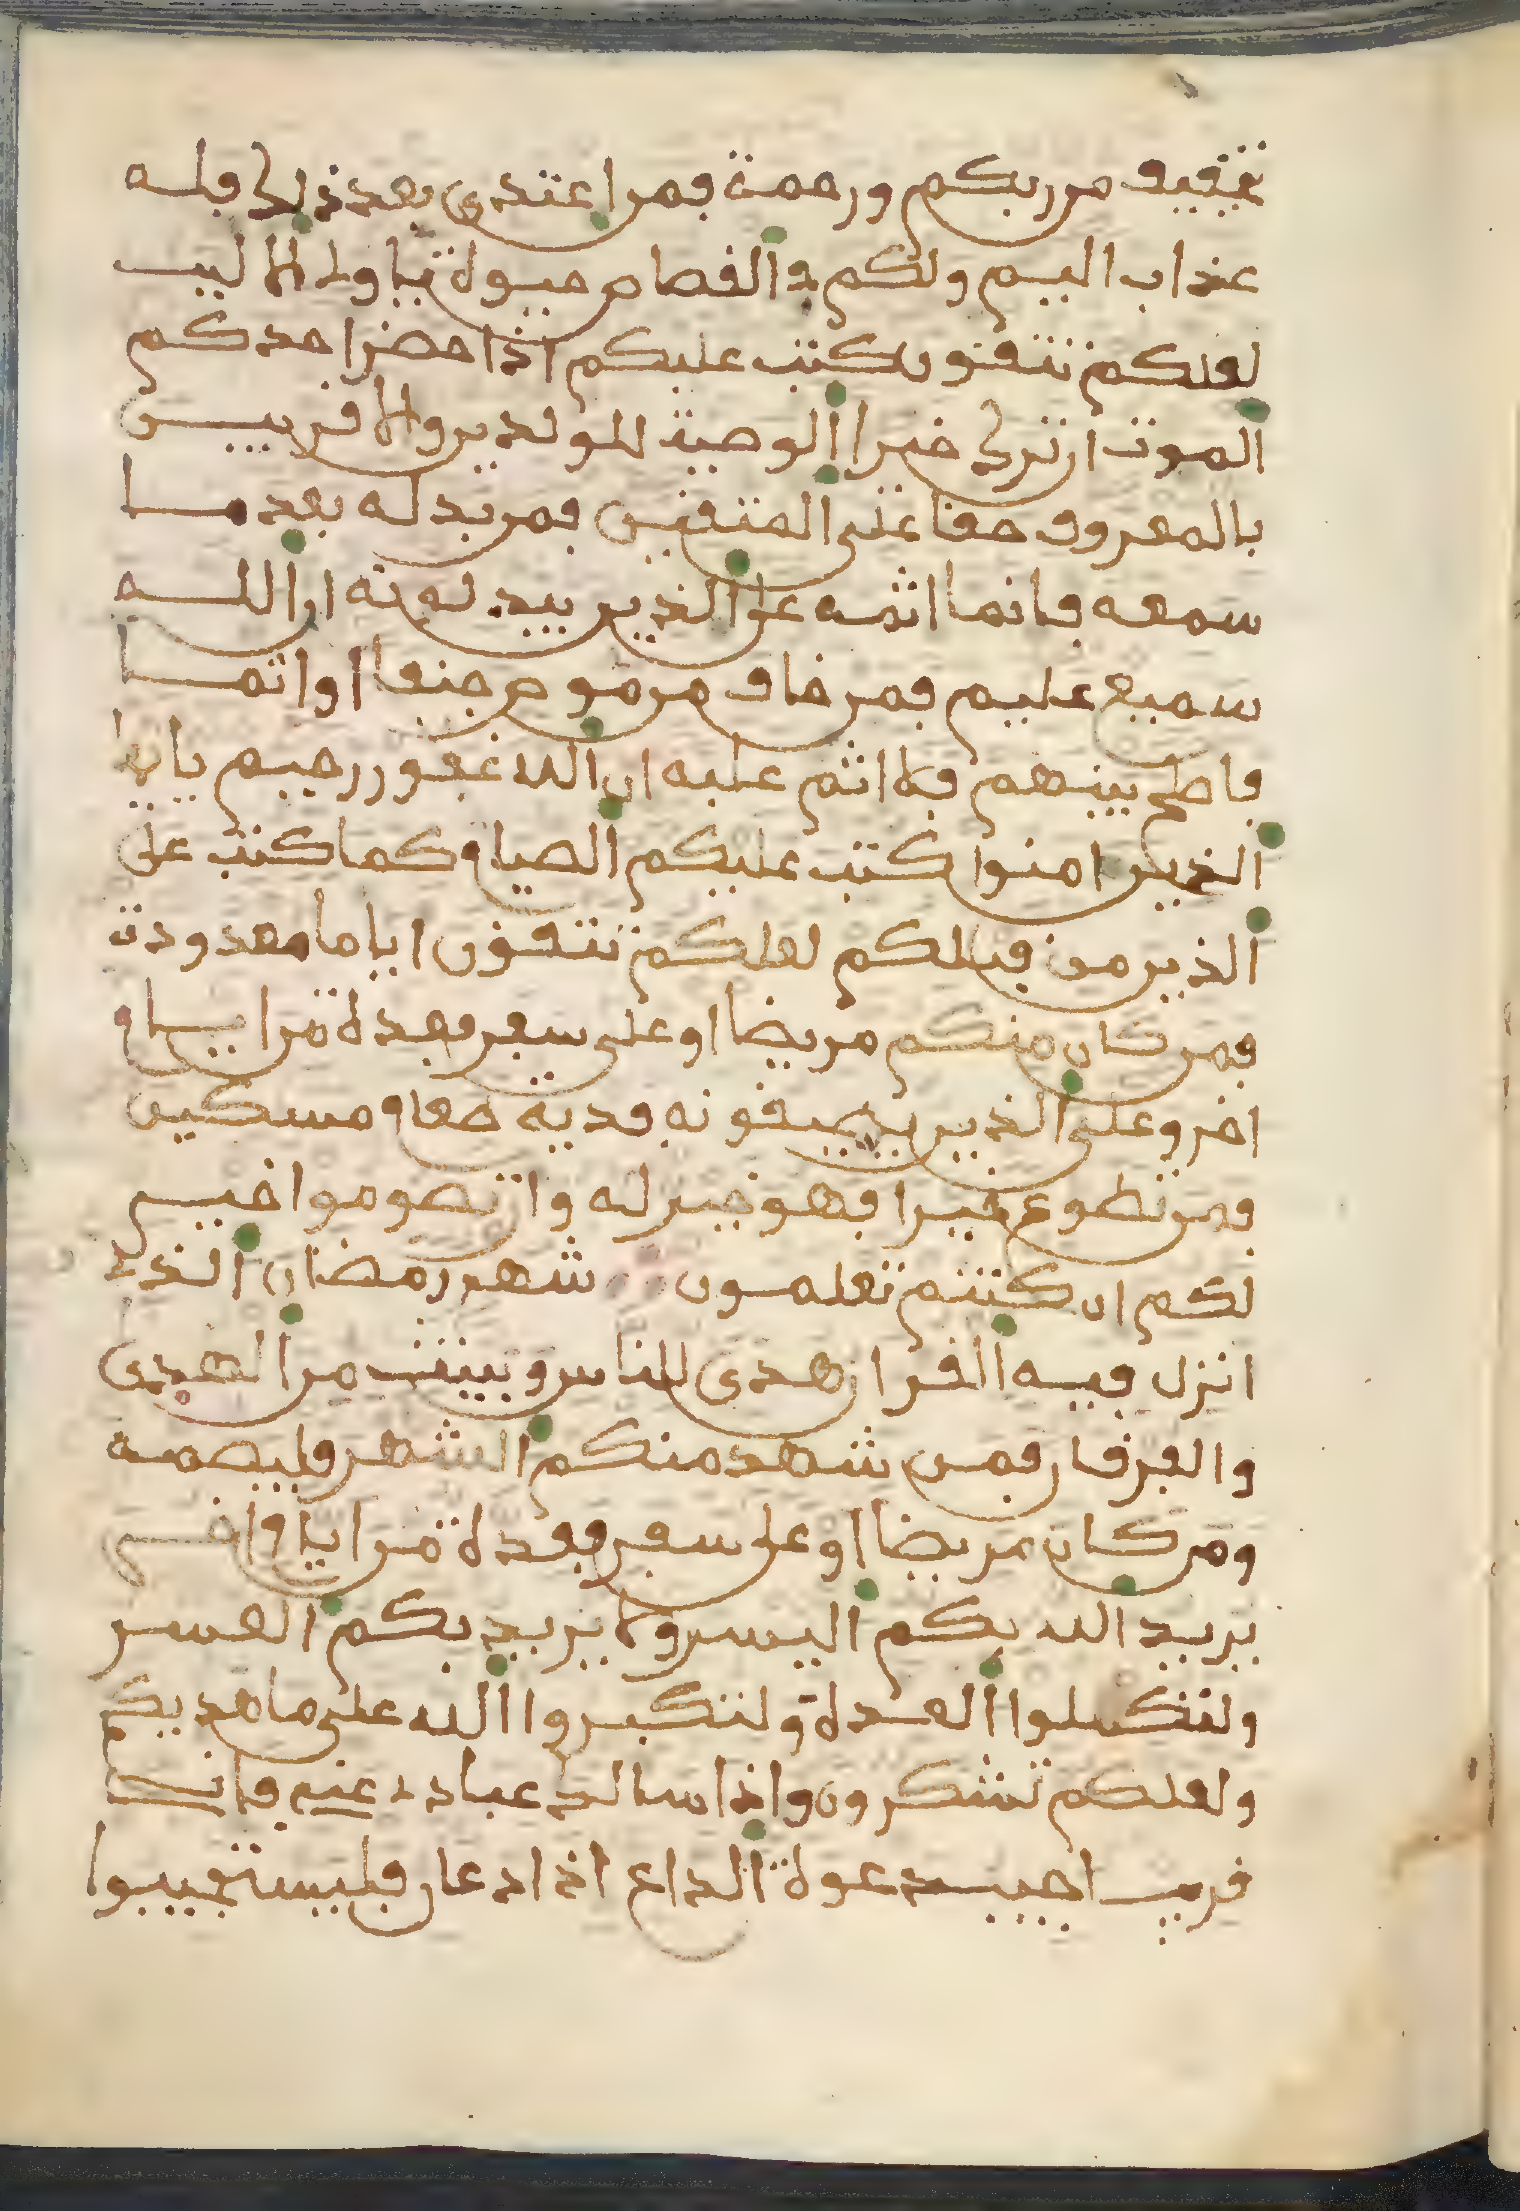 تخفيف من ربكم ورحمة فمن اعتدى بعد ذلك فله
عذاب اليم ولكم في القصاص حيوة يا ولي الالبب
لعلكم تتقون كتب عليكم اذا حضر احدكم
الموت ان ترك خيرا الوصية للولدين والاقربين
بالمعروف حقا على المتقين فمن بدله بعد ما
سمعه فانما اثمه على الذين يبدلونه ان الله
سميع عليم فمن خاف من موص جنفا او اثما
فاصلح بينهم فلا اثم عليه ان الله غفور رحيم يايها
الذين امنوا كتب عليكم الصيام كما كتب على
الذين من قبلكم لعلكم تتقون اياما معدودت
فمن كان منكم مريضا او على سفر فعدة من ايام
اخر وعلى الذين يطيقونه فدية طعام مسكين
فمن تطوع خيرا فهو خير له وان تصوموا خير
لكم ان كنتم تعلمون شهر رمضان الذي
انزل فيه القران هدى للناس وبينت من الهدى
والفرقان فمن شهد منكم الشهر فليصمه
ومن كان مريضا او على سفر فعدة من ايام اخر
يريد الله بكم اليسر ولا يريد بكم العسر
ولتكملوا العدة ولتكبروا الله على ما هديكم
ولعلكم تشكرون واذا سالك عبادي عني فاني
قريب اجيب دعوة الداع اذا دعان فليستجيبوا